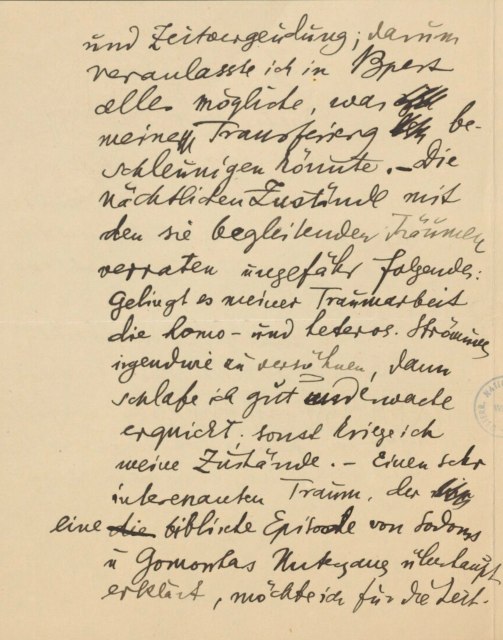 und Zeitvergeudung; darum
veranlasste ich in Bpest
alles mögliche, was
meine Transferierg be-
schleunigen könnte. – Die
nächtlichen Zustände mit
den sie begleitenden Träumen
verraten ungefähr folgendes:
Gelingt es meiner Traumarbeit
die homo- und heteros. Strömungen
irgendwie zu versöhnen, dann
schlafe ich gut und erwache
erquickt, sonst kriege ich
meine Zustände. – Einen sehr
interessanten Traum, der
eine die biblische Episode von Sodoms
u Gomorrhas Untergang überhaupt
erklärt, möchte ich für die Zeit-